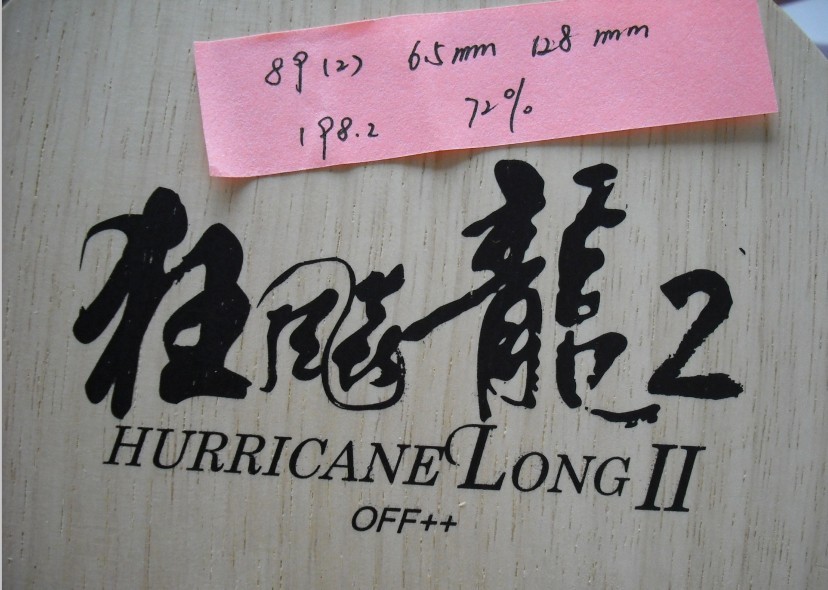 89 (2) 6.5mm 128 mm
198.2 72%
狂飚龍2
HURRICANE LONG II
OFF++